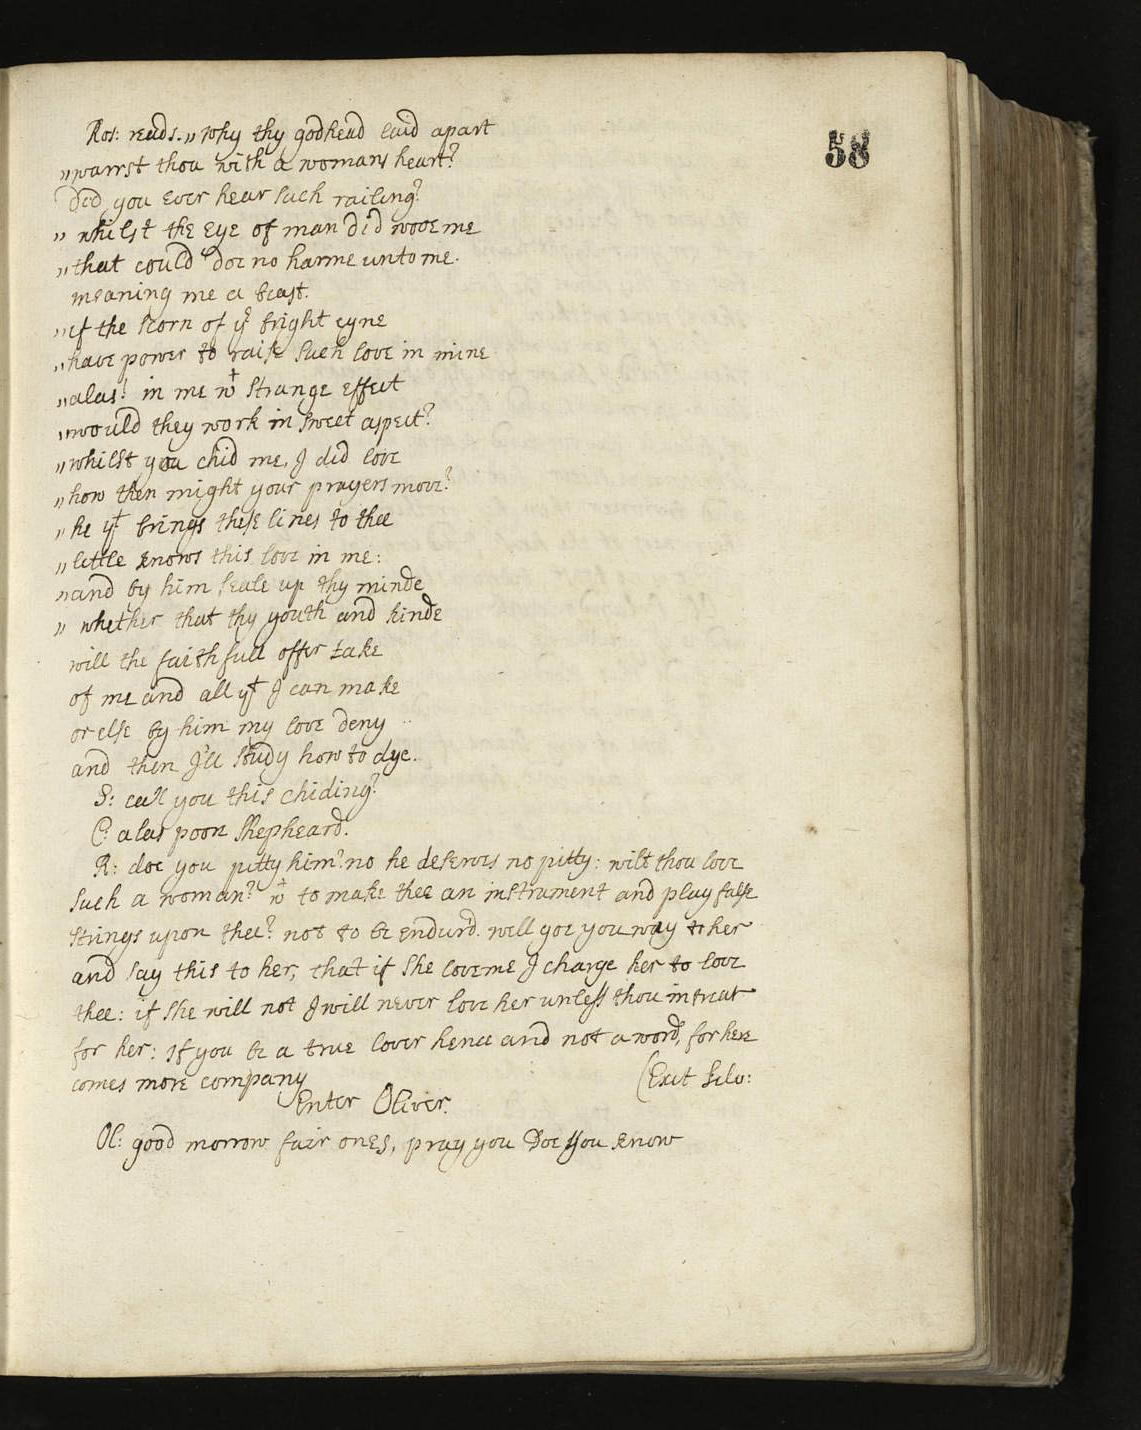 58
Ros: reads. „ why thy godhead laid apart
„ warrst thou with a womans heart?
Did you ever hear such railing?
„ whilst the eye of man did wooe me
„ that could doe no harme unto me.
meaning me a beast.
„ if the scorn of yr bright eyne
„ have power to raise such love in mine
„ alas! in me wt strange effect
„ would they work in sweet aspect?
„ whilst you chid me, I did love
„ how then might your prayers move?
„ he yt brings these lines to thee
„ little knows this love in me:
„ and by him seale up thy minde
„ whether that thy youth and kinde
will the faithfull offer take
of me and all yt I can make
or else by him my love deny
and then I'll study how to dye.
S: call you this chiding?
C: alas poor shepheard.
R: doe you pitty him? no he deserves no pitty: wilt thou love
such a woman? wt to make thee an instrument and play false
strings upon thee? not to be endur'd. well goe you way to her
and say this to her, that if she love me I charge her to love
thee: if she will not I will never love her unless thou intreat
for her: If you be a true lover hence and not a word, for here
comes more company (Exit Silv:
Enter Oliver.
Ol: good morrow fair ones, pray you doe you know